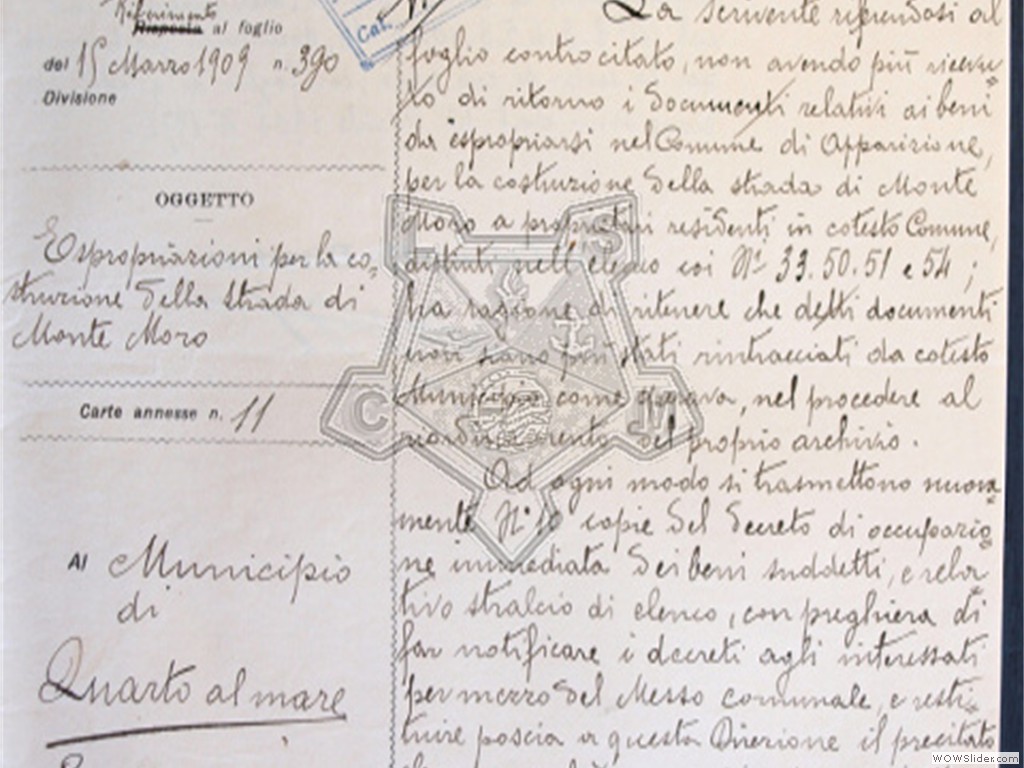 Riferimento
Risposta al foglio
del 15 Marzo 1909 n. 390
Divisione
OGGETTO
Espropriazioni per la co-
struzione della strada di
Monte Moro
Carte annesse n. 11
Al Municipio
di
Quarto al mare
Cat.
La scrivente riferendosi al
foglio controcitato, non avendo più ricevu-
to di ritorno i documenti relativi ai beni
da espropriarsi nel Comune di Apparizione,
per la costruzione della strada di Monte
Moro a proprietari residenti in cotesto Comune,
distinti nell'elenco coi Ni 33.50.51 e 54;
ha ragione di ritenere che detti documenti
non siano più stati rintracciati da cotesto
Municipio come sperava, nel procedere al
riordinamento del proprio archivio.
Ad ogni modo si trasmettono nuova-
mente N° 10 copie del Decreto di occupazio-
ne immediata dei beni suddetti, e rela-
tivo stralcio di elenco, con preghiera di
far notificare i decreti agli interessati
per mezzo del Messo comunale, e resti-
tuire poscia a questa Direzione il precitato
C
S
C
M
WOWSlider.com